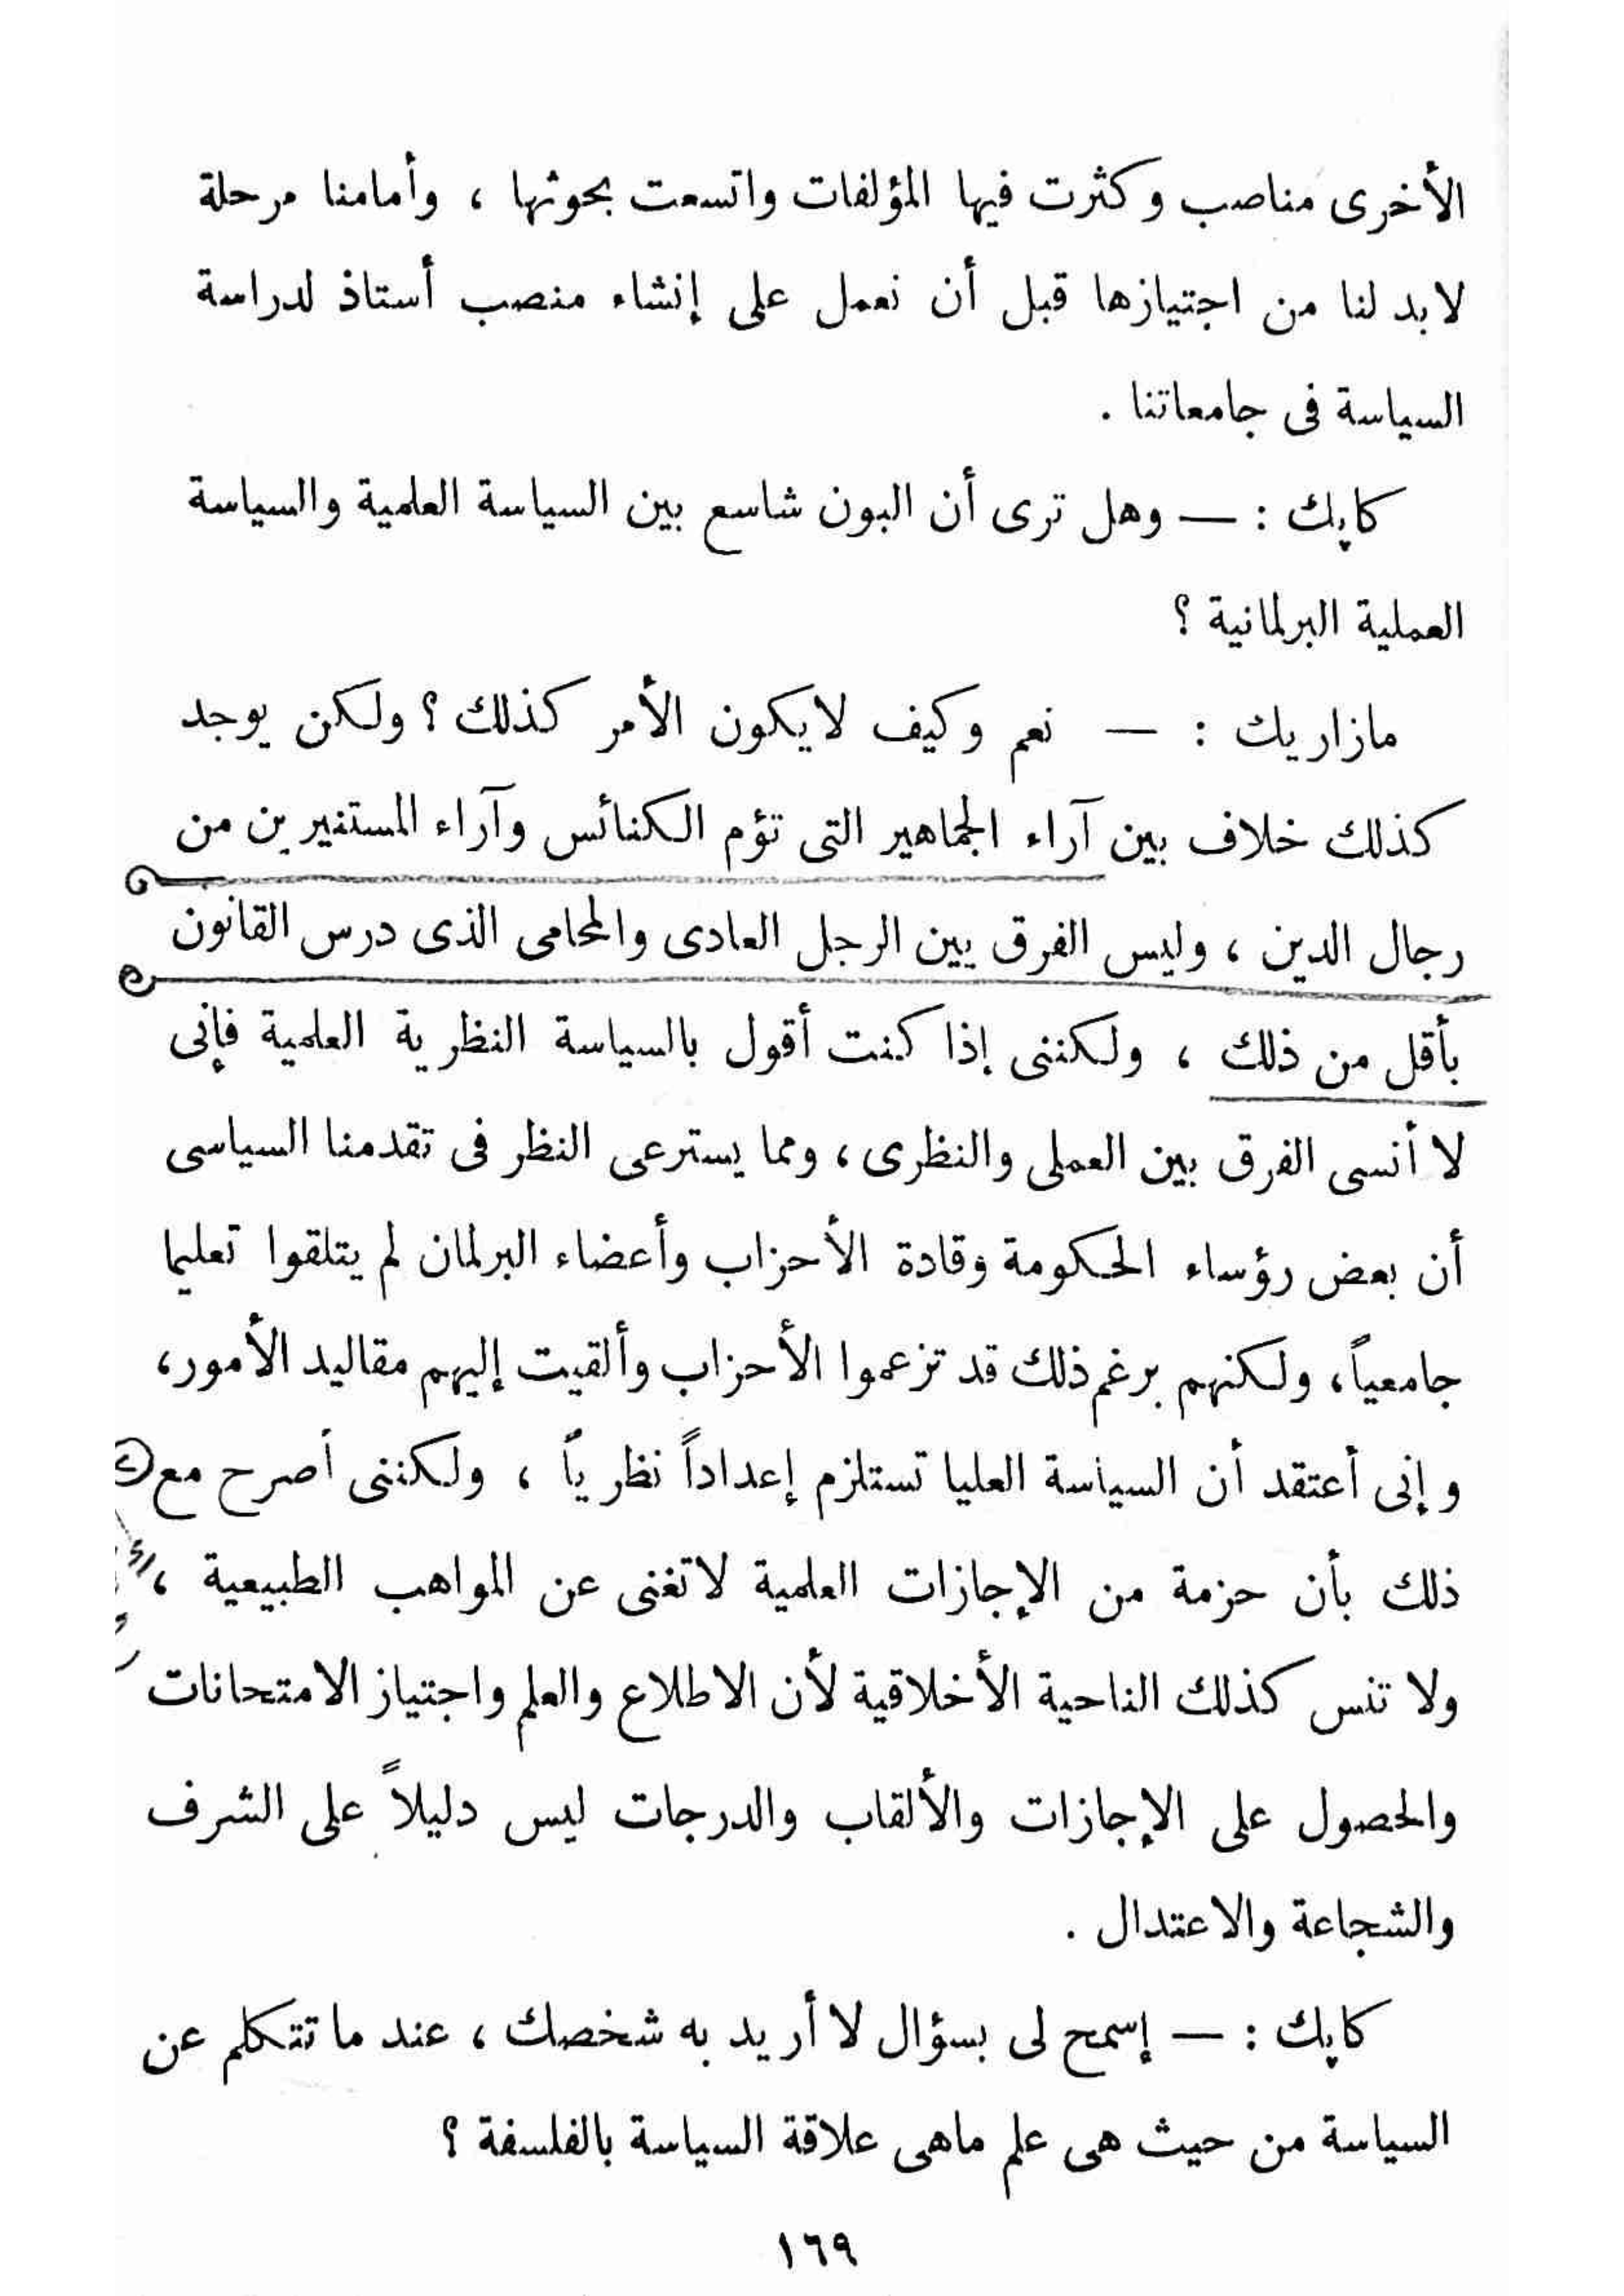 الأخرى مناصب وكثرت فيها المؤلفات واتسعت بحوثها ، وأمامنا مرحلة
لابد لنا من اجتيازها قبل أن نعمل على إنشاء منصب أستاذ لدراسة
السياسة فى جامعاتنا .
كاپك : — وهل ترى أن البون شاسع بين السياسة العلمية والسياسة
العملية البرلمانية ؟
مازاريك : — نعم وكيف لايكون الأمر كذلك ؟ ولكن يوجد
كذلك خلاف بين آراء الجماهير التى تؤم الكنائس وآراء المستنيرين من
رجال الدين ، وليس الفرق بين الرجل العادى والمحامى الذى درس القانون
بأقل من ذلك ، ولكننى إذا كنت أقول بالسياسة النظرية العلمية فإنى
لا أنسى الفرق بين العملى والنظرى ، ومما يسترعى النظر فى تقدمنا السياسى
أن بعض رؤساء الحكومة وقادة الأحزاب وأعضاء البرلمان لم يتلقوا تعليما
جامعياً ، ولكنهم برغم ذلك قد تزعموا الأحزاب وألقيت إليهم مقاليد الأمور ،
وإنى أعتقد أن السياسة العليا تستلزم إعداداً نظرياً ، ولكننى أصرح مع
ذلك بأن حزمة من الإجازات العلمية لاتغنى عن المواهب الطبيعية ،
ولا تنس كذلك الناحية الأخلاقية لأن الاطلاع والعلم واجتياز الامتحانات
والحصول على الإجازات والألقاب والدرجات ليس دليلاً على الشرف
والشجاعة والاعتدال .
كاپك : — إسمح لى بسؤال لا أريد به شخصك ، عند ما تتكلم عن
السياسة من حيث هى علم ماهى علاقة السياسة بالفلسفة ؟
١٦٩